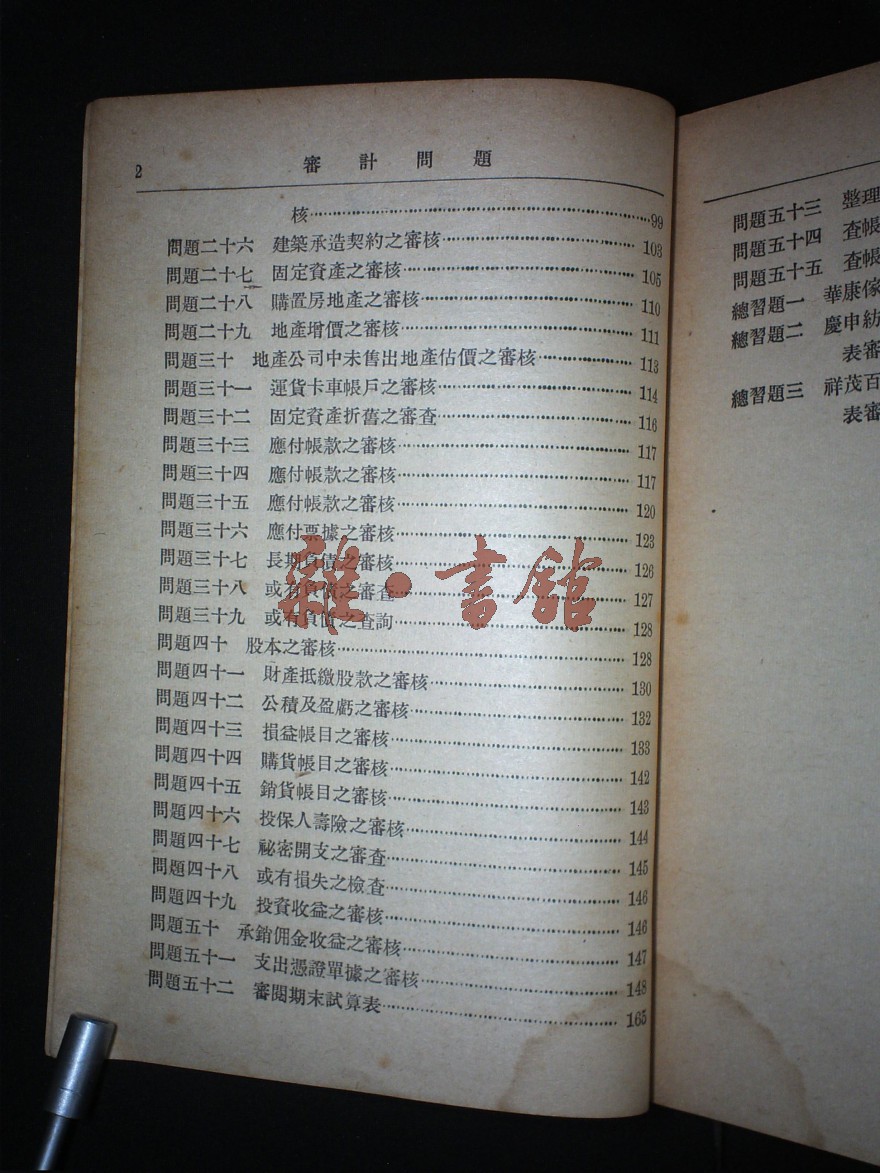 2
審計問題
核……99
問題二十六 建築承造契約之審核……103
問題二十七 固定資產之審核……105
問題二十八 購置房地產之審核……110
問題二十九 地產增價之審核……111
問題三十 地產公司中未售出地產估價之審核……113
問題三十一 運貨卡車帳戶之審核……114
問題三十二 固定資產折舊之審查……116
問題三十三 應付帳款之審核……117
問題三十四 應付帳款之審核……117
問題三十五 應付帳款之審核……120
問題三十六 應付票據之審核……123
問題三十七 長期負債之審核……126
問題三十八 或有負債之審查……127
問題三十九 或有負債之查詢……128
問題四十 股本之審核……128
問題四十一 財產抵繳股款之審核……130
問題四十二 公積及盈虧之審核……132
問題四十三 損益帳目之審核……133
問題四十四 購貨帳目之審核……142
問題四十五 銷貨帳目之審核……143
問題四十六 投保人壽險之審核……144
問題四十七 祕密開支之審查……145
問題四十八 或有損失之檢查……146
問題四十九 投資收益之審核……146
問題五十 承銷佣金收益之審核……147
問題五十一 支出憑證單據之審核……148
問題五十二 審閱期末試算表……165
雜·書館
問題五十三 整理
問題五十四 查帳
問題五十五 查帳
總習題一 華康傢
總習題二 慶申紡
表審
總習題三 祥茂百
表審